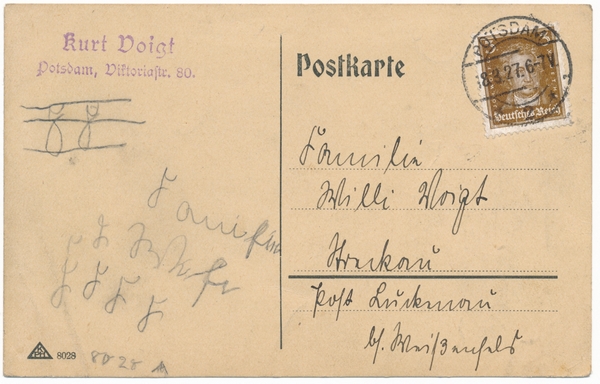 Kurt Voigt
Potsdam, Viktoriastr. 80.
Postkarte
POTSDAM
8.3.27.6-7V.
Deutsches Reich
Familie
Willi Voigt
Streckau
Post Luckenau
b/. Weißenfels
Familie
8028
8028